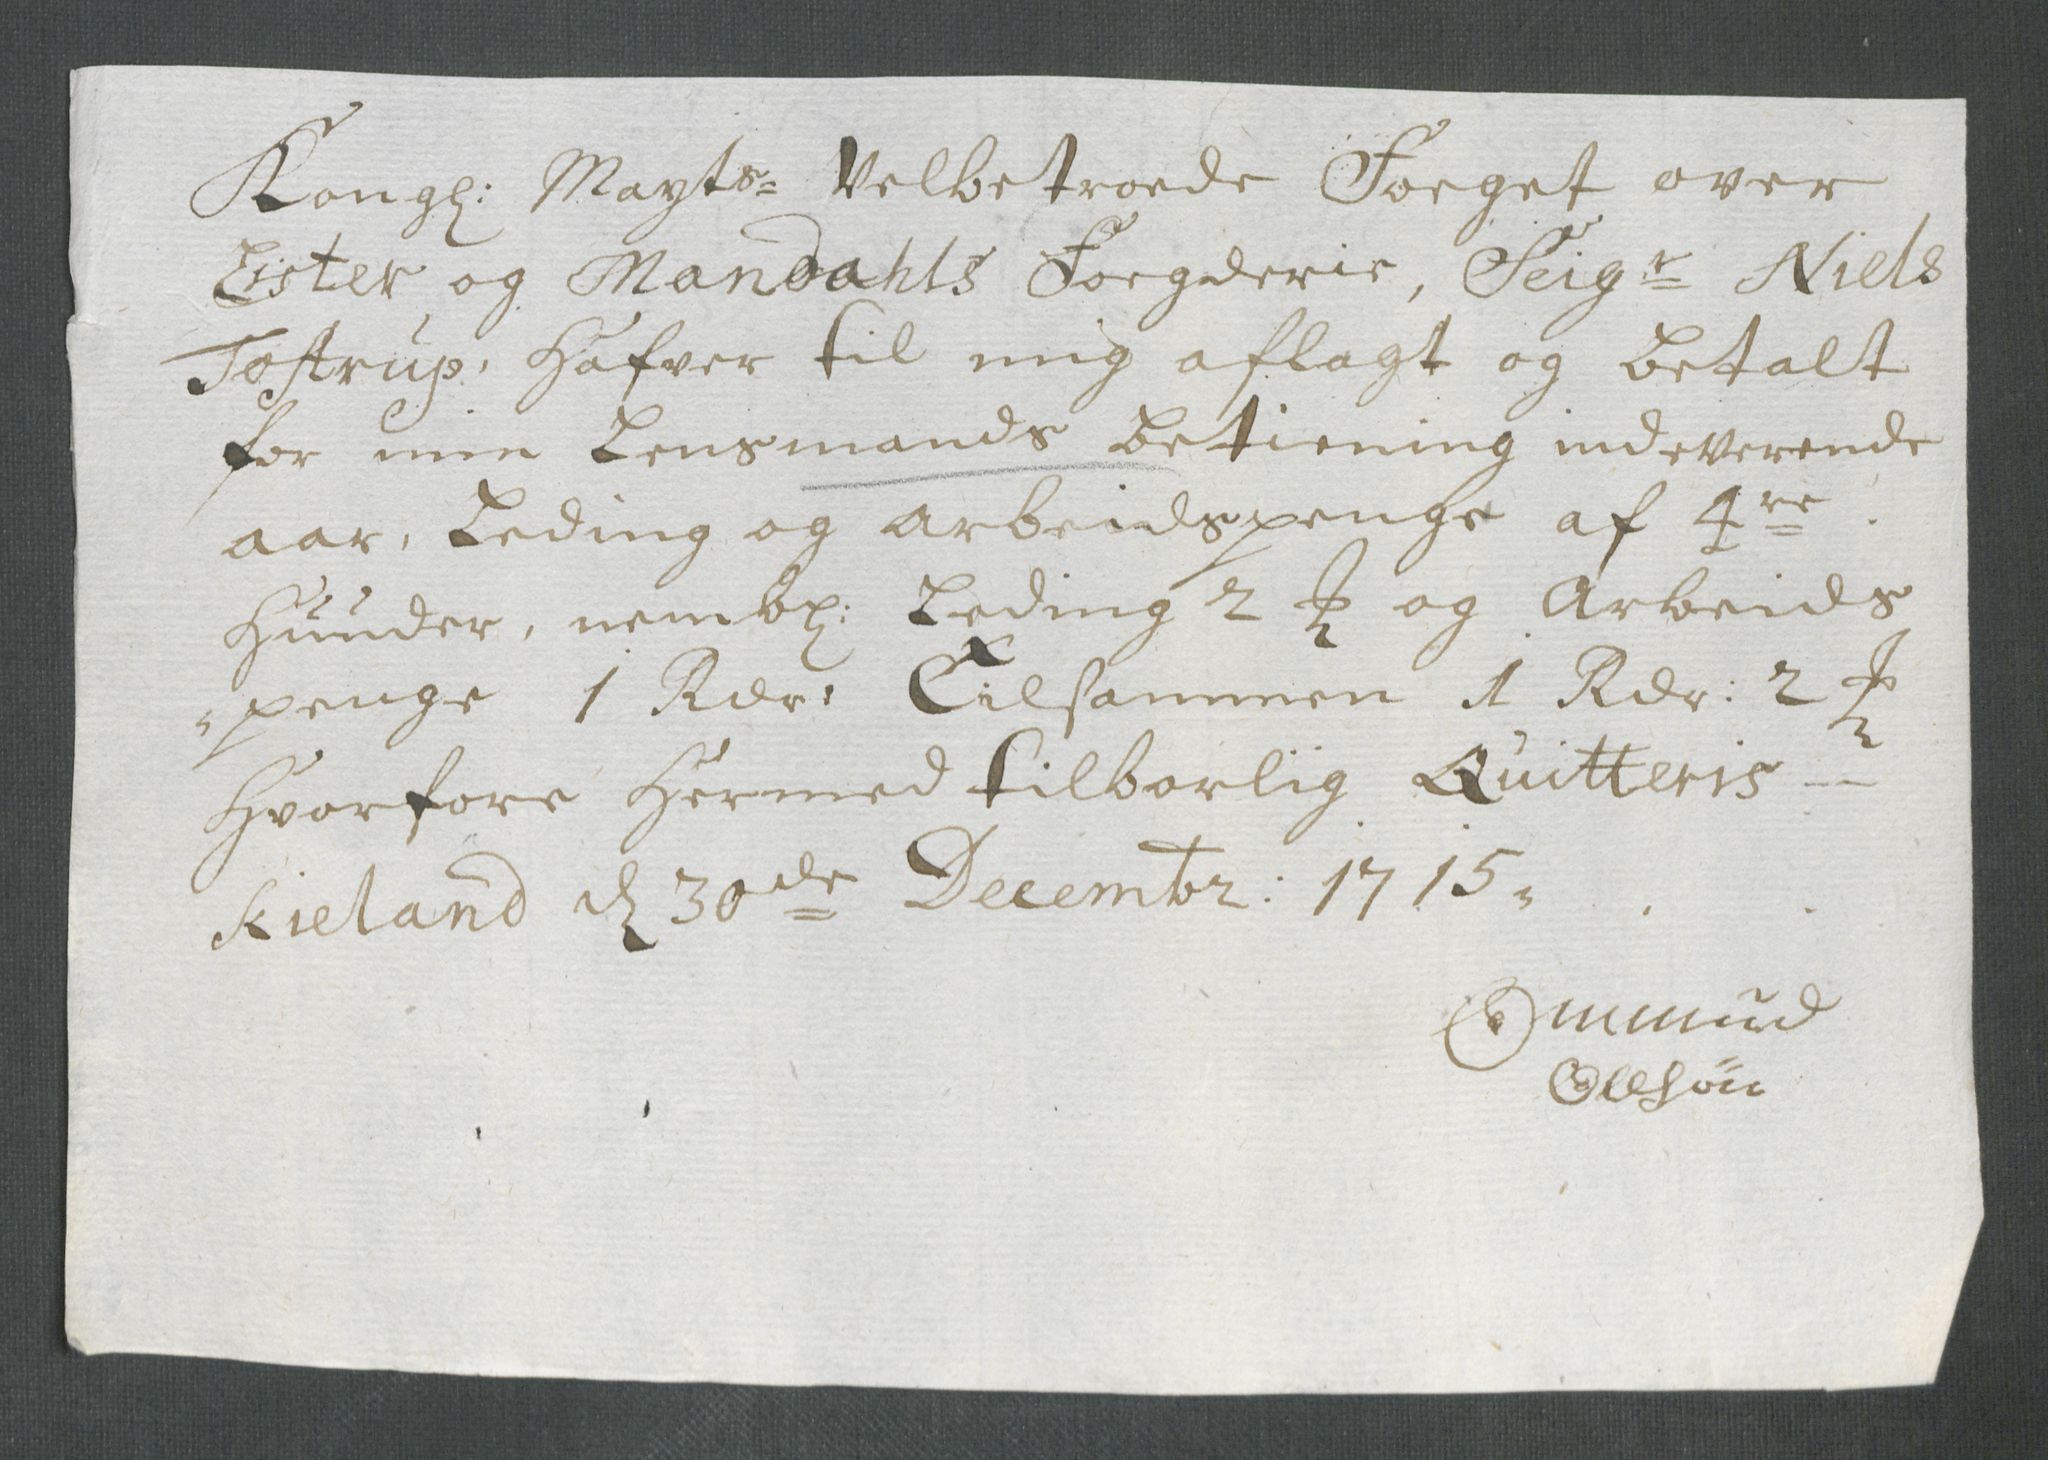 Kongl: Mayts= Velbetroede Foeget over
Lister og Mandahls Foegderie, Seigr Niels
Tostrup, Hafver til mig aflagt og betalt
for min Lensmands betiening indeverende
aar, Leding og arbeidspenge af 4re
Huuder, nembl: Leding 2 ℔ og Arbeids
"penge 1 Rdr: Tilsammen 1 Rdr: 2 ℔
Hvorfore Hermed tilborlig Quitteris —
Kieland d 30de Decembr: 1715,
Ommund
Ollsön